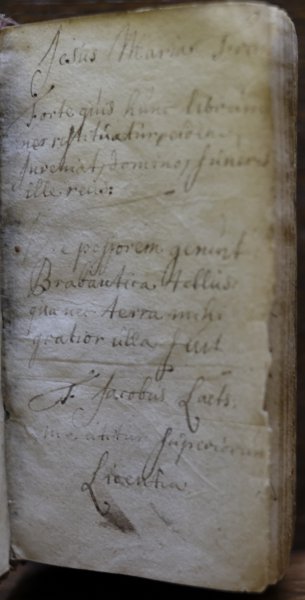 Jesus Mariae
Forte quis hunc librum
nec restituatur
Inveniat, domino, funeris
ille reus:
peperem genuit
Brabantica tellus
qua nec terra mihi
gratior ulla fuit
F. Jacobus Laets.
me utitur superiorum
Licentia